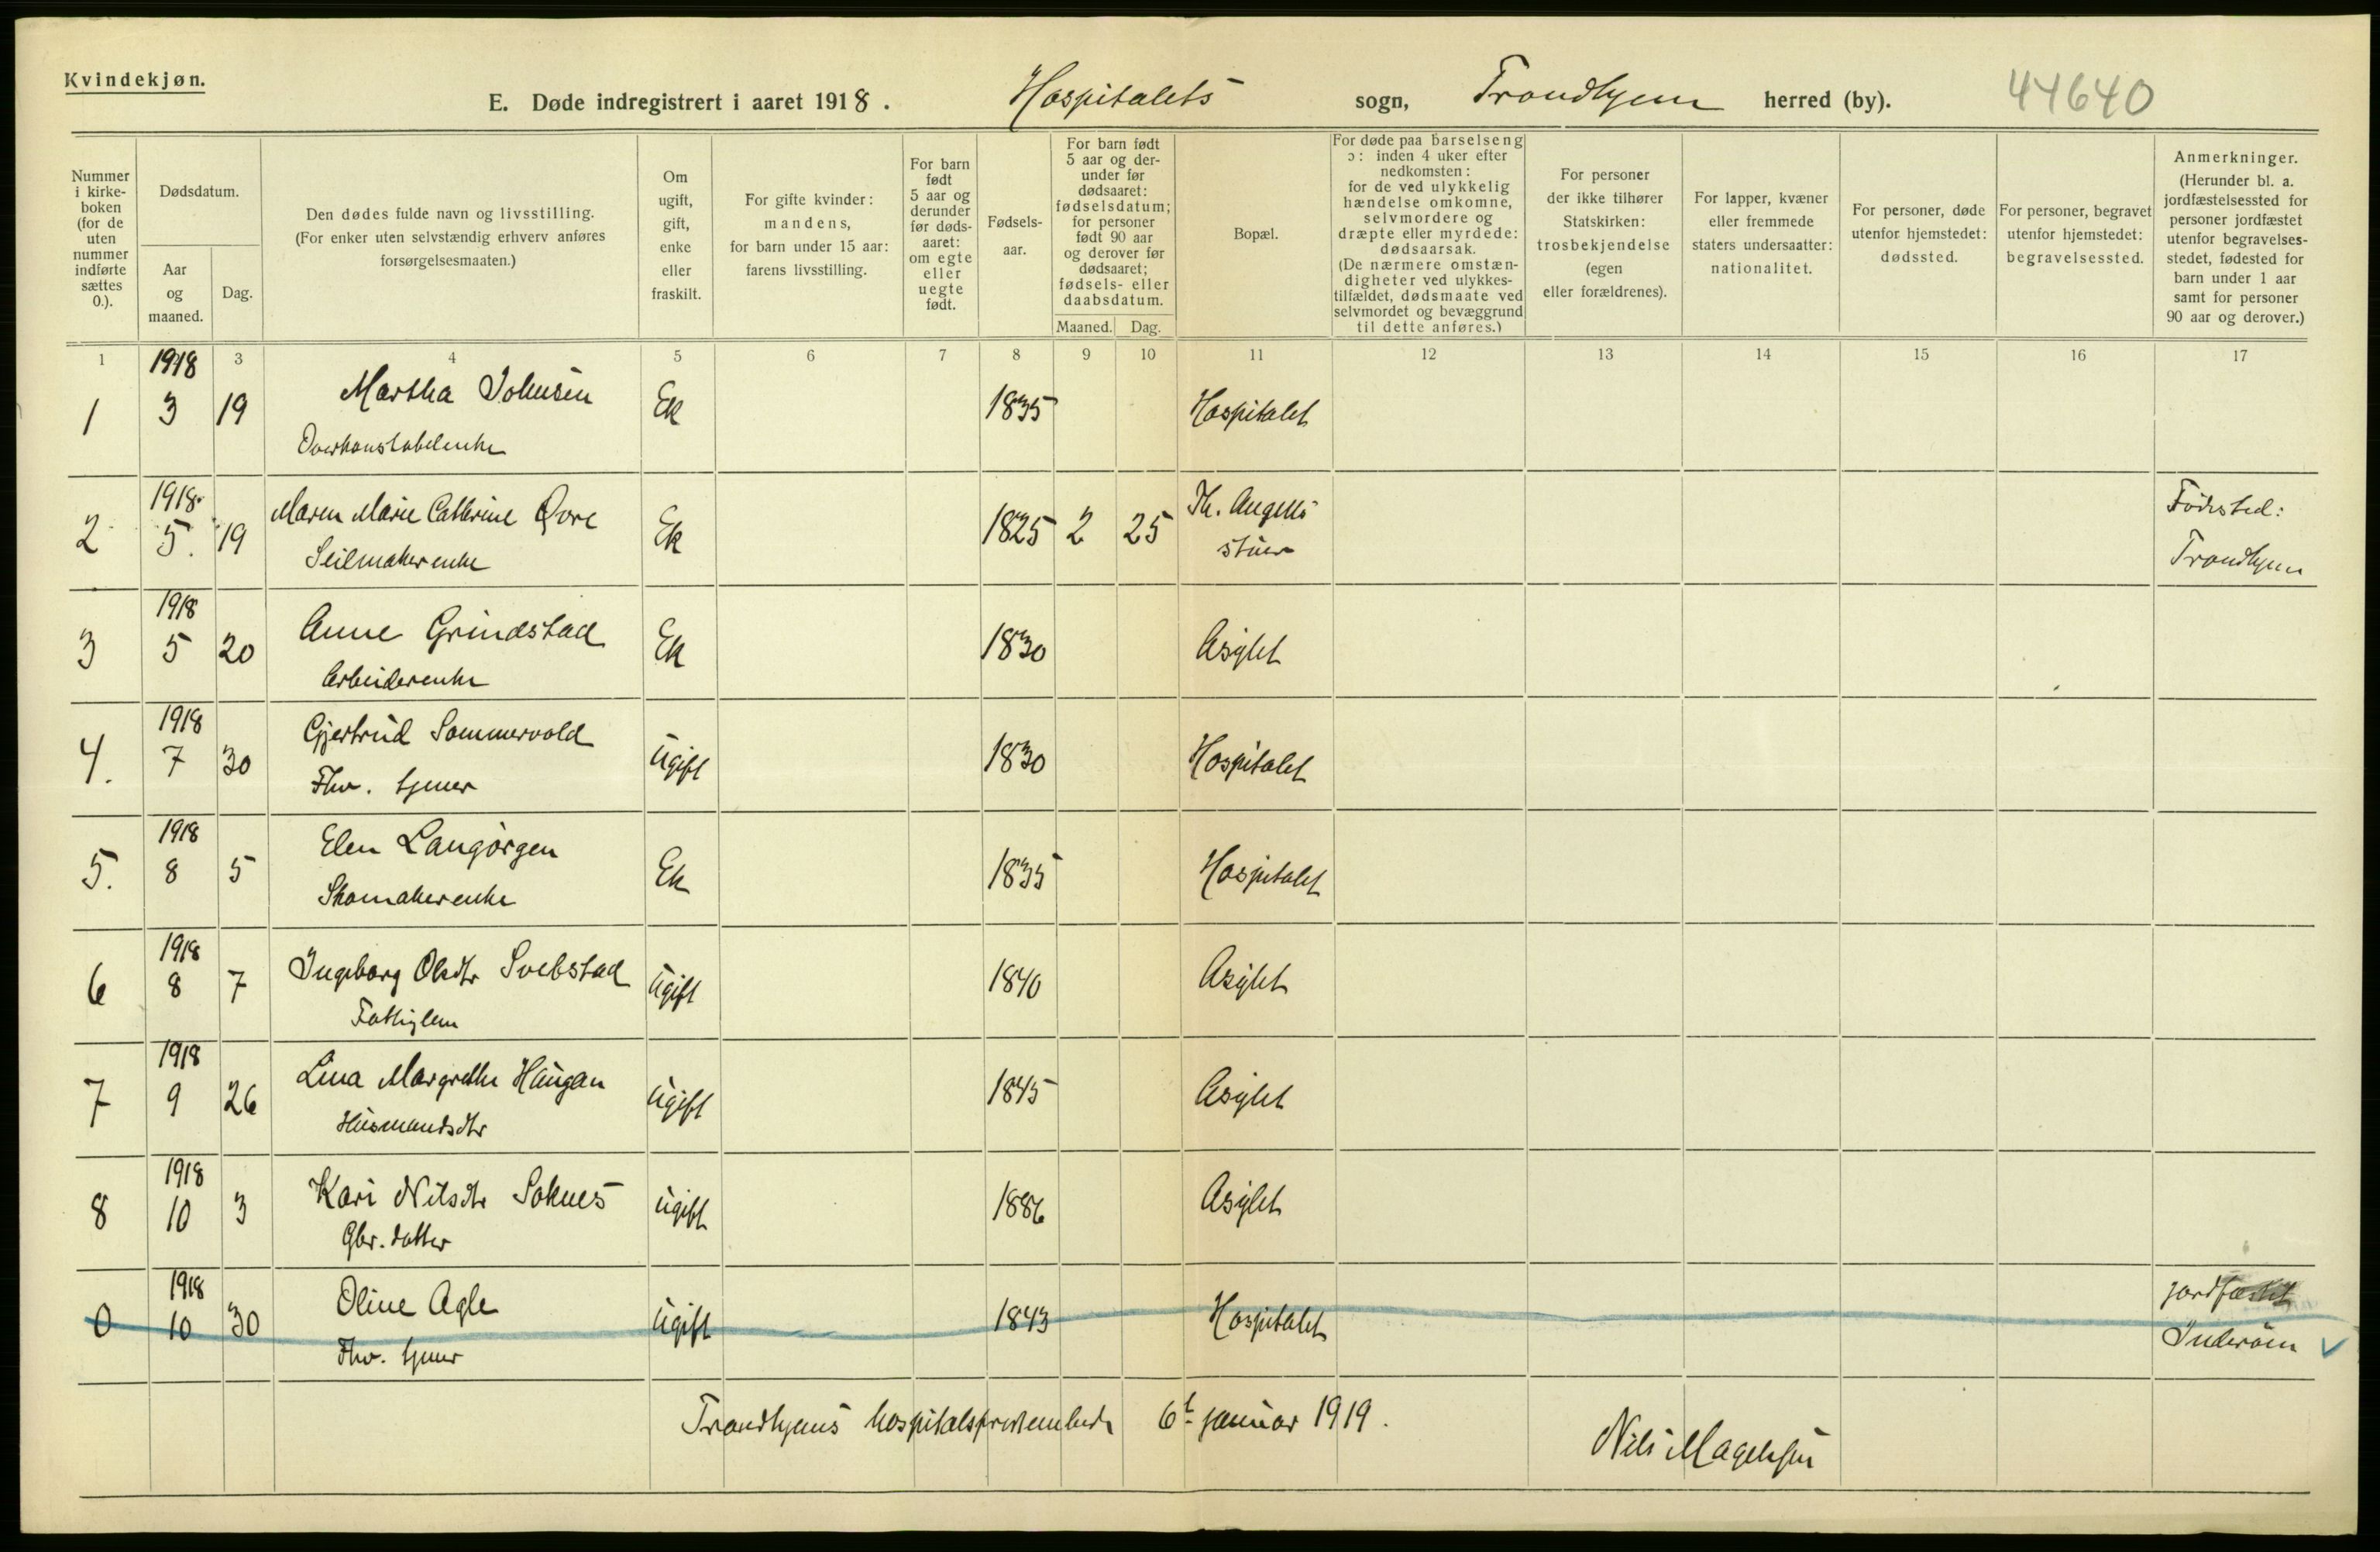 Kvindekjøn.
E. Døde indregistrert i aaret 1918. Hospitalets sogn, Trondhjem herred (by). 44640
Nummer i kirke-boken (for de uten nummer indførte sættes 0.).
Dødsdatum.
Aar og maaned.
Dag.
Den dødes fulde navn og livsstilling.
(For enker uten selvstændig erhverv anføres
forsørgelsesmaaten.)
Om ugift, gift, enke eller fraskilt.
For gifte kvinder:
mandens,
for barn under 15 aar:
farens livsstilling.
For barn født 5 aar og derunder før døds-aaret: om egte eller uegte født.
Fødsels-aar.
For barn født 5 aar og der-under før dødsaaret: fødselsdatum; for personer født 90 aar og derover før dødsaaret; fødsels- eller daabsdatum.
Maaned. Dag.
Bopæl.
For døde paa barselseng
ɔ: inden 4 uker efter
nedkomsten:
for de ved ulykkelig
hændelse omkomne,
selvmordere og
dræpte eller myrdede:
dødsaarsak.
(De nærmere omstæn-
digheter ved ulykkes-
tilfældet, dødsmaate ved
selvmordet og bevæggrund
til dette anføres.)
For personer
der ikke tilhører
Statskirken:
trosbekjendelse
(egen
eller forældrenes).
For lapper, kvæner
eller fremmede
staters undersaatter:
nationalitet.
For personer, døde
utenfor hjemstedet:
dødssted.
For personer, begravet
utenfor hjemstedet:
begravelsessted.
Anmerkninger.
(Herunder bl. a.
jordfæstelsessted for
personer jordfæstet
utenfor begravelses-
stedet, fødested for
barn under 1 aar
samt for personer
90 aar og derover.)
1 1918 3 4 5 6 7 8 9 10 11 12 13 14 15 16 17
1 3 19 Martha Johnsen Ek 1835 Hospitalet
Overkonstabelenke
1918
2 5. 19 Maren Marie Cathrine Qvre Ek 1825 2 25 Th. Angells stuer Fødested: Trondhjem
Seilmakerenke
1918
3 5 20 Anne Grindstad Ek 1830 Asylet
Arbeiderenke
1918
4. 7 30 Gjertrud Sommervold ugift 1830 Hospitalet
Fhv. tjener
1918
5. 8 5 Elen Langørgen Ek 1835 Hospitalet
Skomakerenke
1918
6 8 7 Ingeborg Olsdtr Svebstad ugift 1840 Asylet
Fattiglem
1918
7 9 26 Lina Margrethe Haugan ugift 1845 Asylet
Husmandsdtr
1918
8 10 3 Kari Nilsdtr Soknes ugift 1886 Asylet
Gbr. datter
1918
0 10 30 Oline Agle ugift 1843 Hospitalet jordfæstet Inderøen
Fhv. tjener
Trondhjems hospitalsprestembede 6t januar 1919.
Nils Magelssen